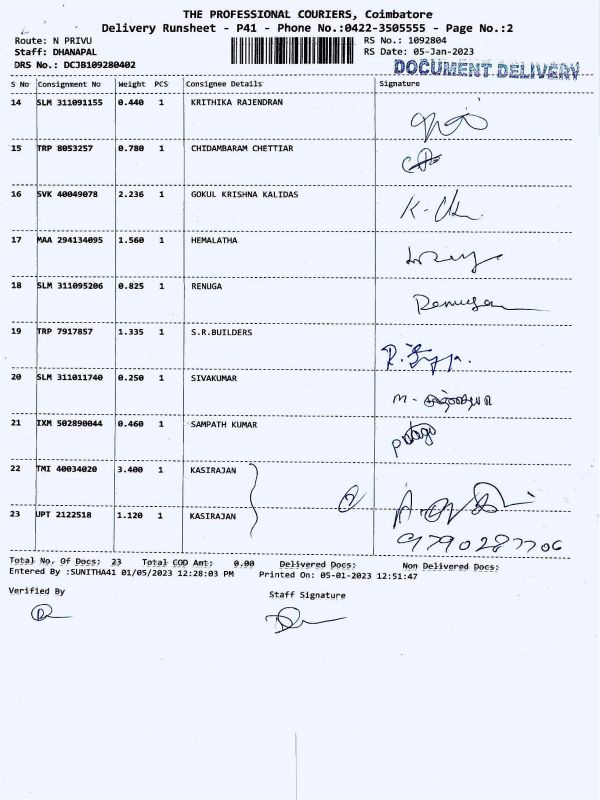 THE PROFESSIONAL COURIERS, Coimbatore
Delivery Runsheet - P41 - Phone No.:0422-3505555 - Page No.:2
Route: N PRIVU RS No.: 1092804
Staff: DHANAPAL RS Date: 05-Jan-2023
DRS No.: DCJB109280402 DOCUMENT DELIVERY
S No Consignment No Weight PCS Consignee Details Signature
14 SLM 311091155 0.440 1 KRITHIKA RAJENDRAN
15 TRP 8053257 0.780 1 CHIDAMBARAM CHETTIAR
16 SVK 40049078 2.236 1 GOKUL KRISHNA KALIDAS
17 MAA 294134095 1.560 1 HEMALATHA
18 SLM 311095206 0.825 1 RENUGA
19 TRP 7917857 1.335 1 S.R.BUILDERS
20 SLM 311011740 0.250 1 SIVAKUMAR
21 IXM 502890044 0.460 1 SAMPATH KUMAR
22 TMI 40034020 3.400 1 KASIRAJAN
23 UPT 2122518 1.120 1 KASIRAJAN
9790287706
Total No. Of Docs: 23 Total COD Amt: 0.00 Delivered Docs: Non Delivered Docs:
Entered By :SUNITHA41 01/05/2023 12:28:03 PM Printed On: 05-01-2023 12:51:47
Verified By Staff Signature